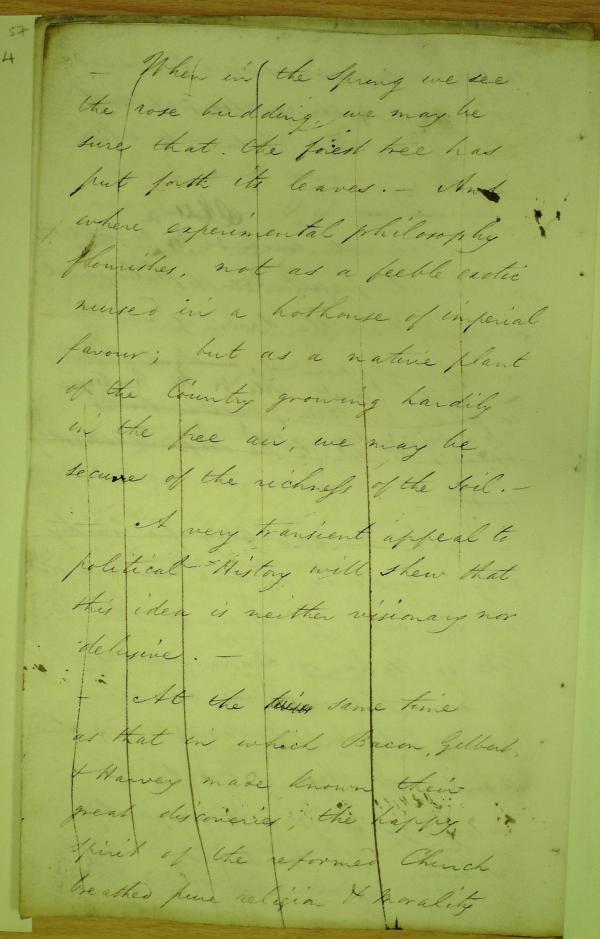 57
4
— When in the Spring we see
the rose budding, we may be
sure that the forest tree has
put forth its leaves. — And
where experimental philosophy
flourishes, not as a feeble exotic
nursed in a hothouse of imperial
favour; but as a native plant
of the Country growing hardily
in the free air, we may be
secure of the richness of the soil. —
— A very transient appeal to
political History will shew that
this idea is neither visionary nor
delusive. —
— At the same time
as that in which Bacon, Gilbert,
& Harvey made known their
great discoveries, the happy
spirit of the reformed Church
breathed pure religion & morality